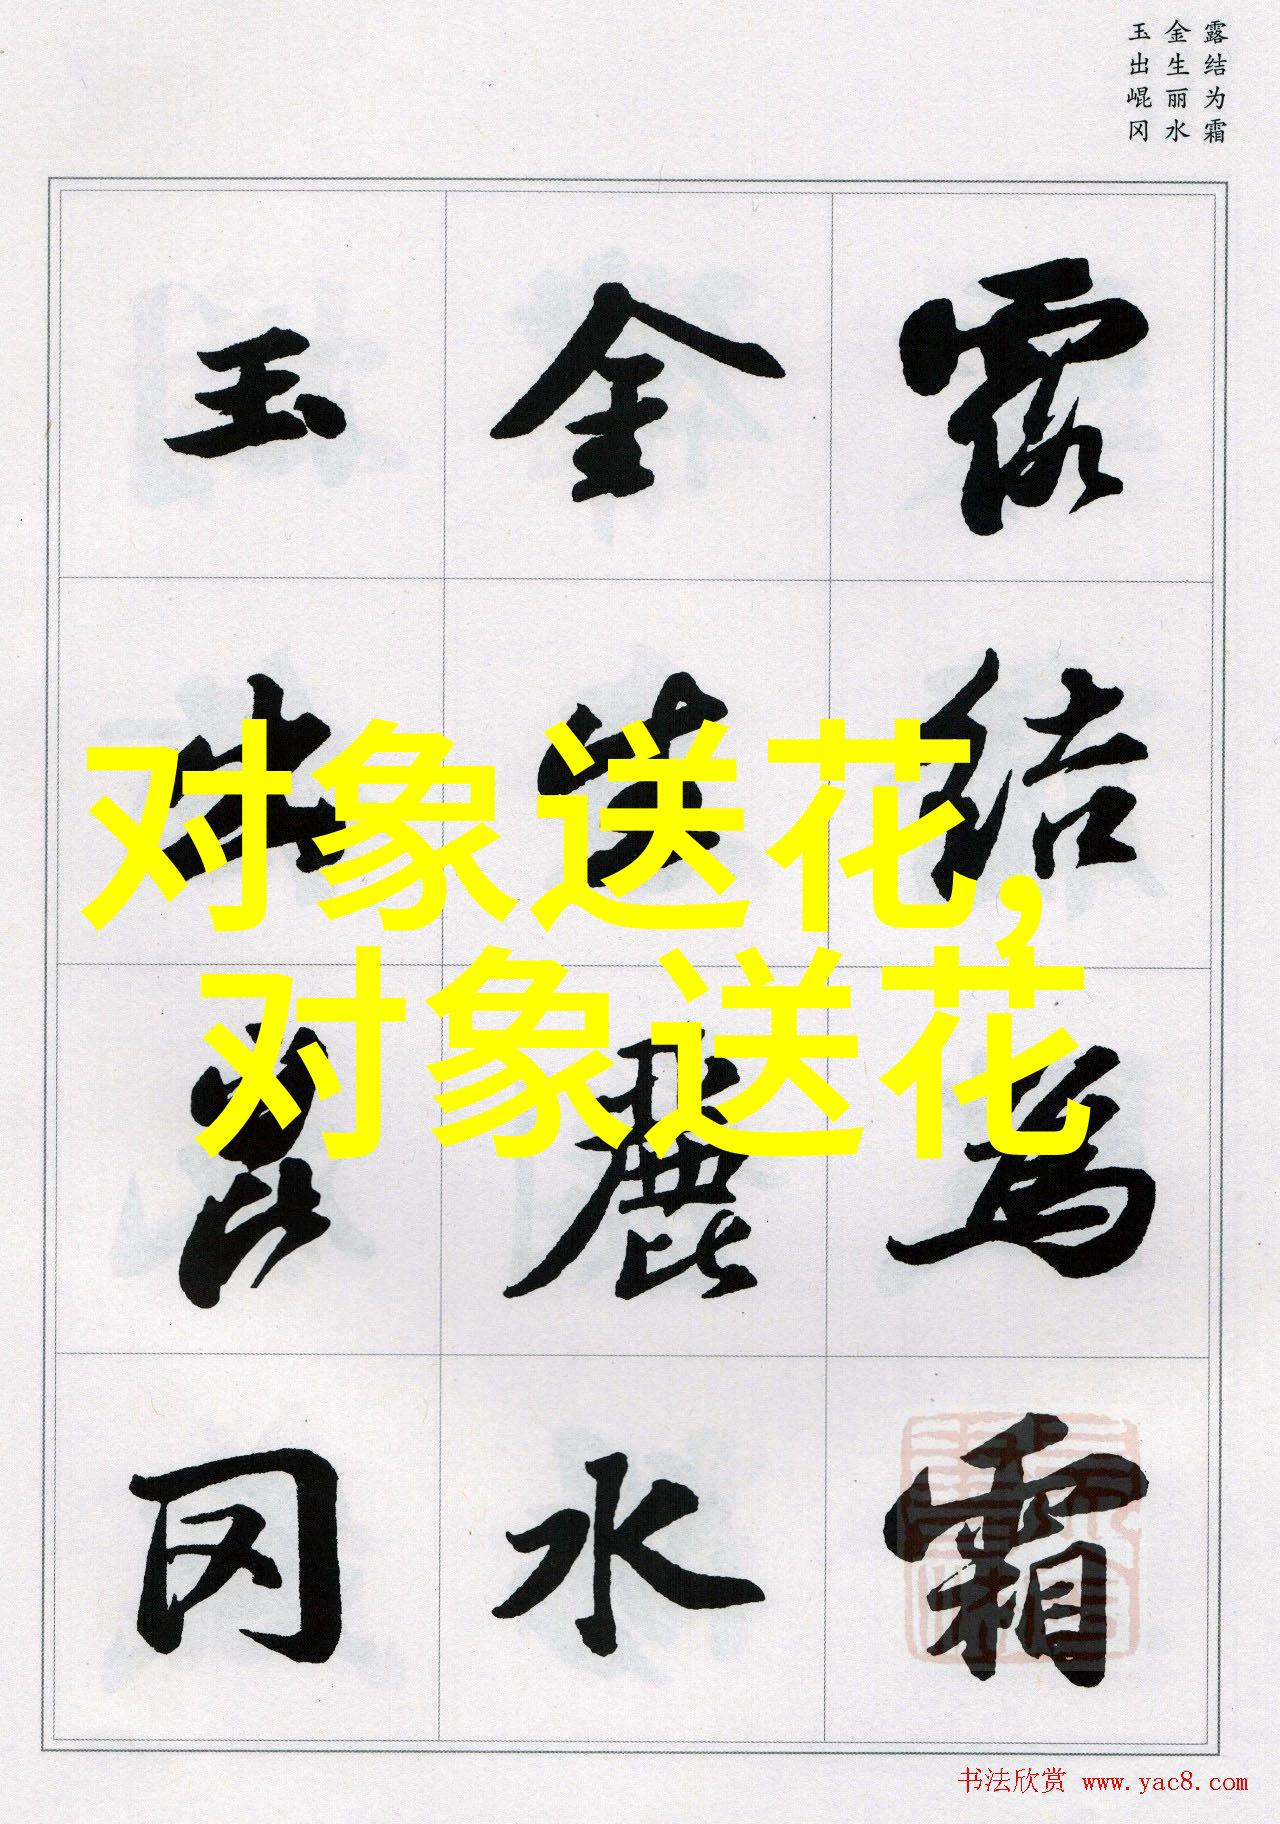 露结为霜
金生丽水
玉出崐冈
露結為霜
金生麗水
玉出崑冈
对象送花,
对象送花
书法欣赏 www.yac8.com